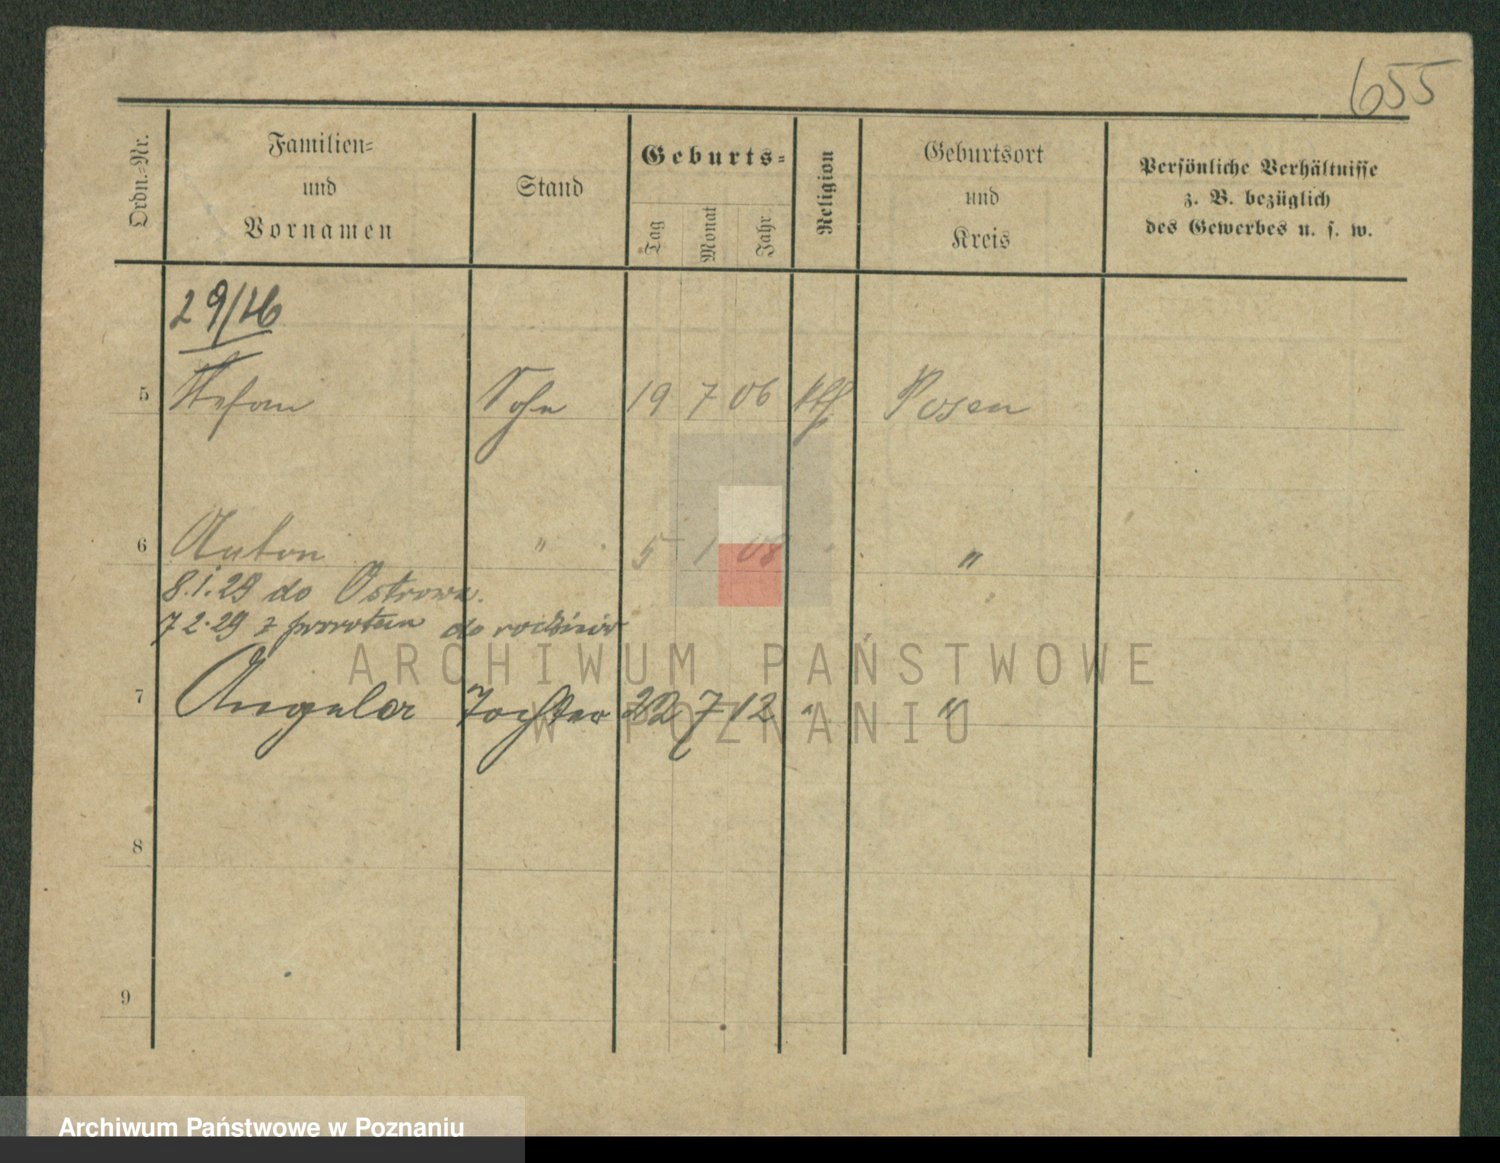 655
Ordn.-Nr.
Familien- und Vornamen
Stand
Geburts-
Tag
Monat
Jahr
Religion
Geburtsort und Kreis
Persönliche Verhältnisse
z. B. bezüglich
des Gewerbes u. s. w.
5 Stefan Sohn 19 7 06 kth Posen
6 Anton " 5 1 08 "
8.1.29 do Ostrowa.
7 2.29 z powrotem do rodziców
7 Angela Tochter 22 7 12 " "
8
9
ARCHIWUM PAŃSTWOWE
W POZNANIU
Archiwum Państwowe w Poznaniu